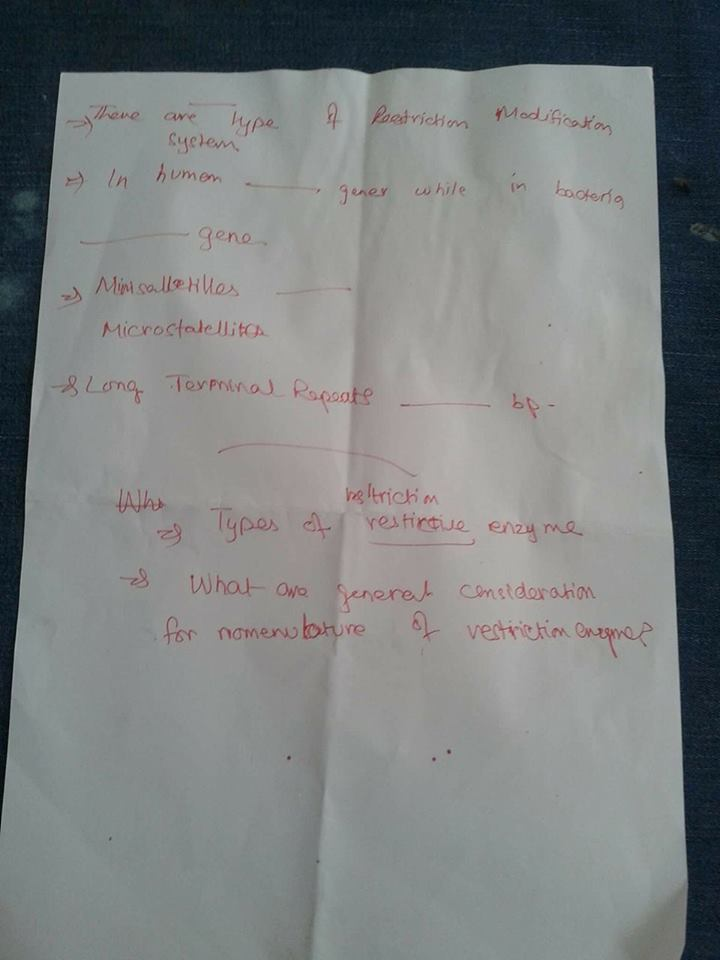 → There are ___ type of Restriction Modification
system
⇒ In human ______. genes while in bacteria
________ gene.
⇒ Minisalletilles ______
Microstatellites
→ Long Terminal Repeats ______ bp -
Whi
restriction
⇒ Types of restirctive enzyme
⇒ What are general consideration
for nomenclature of restriction enzyme?